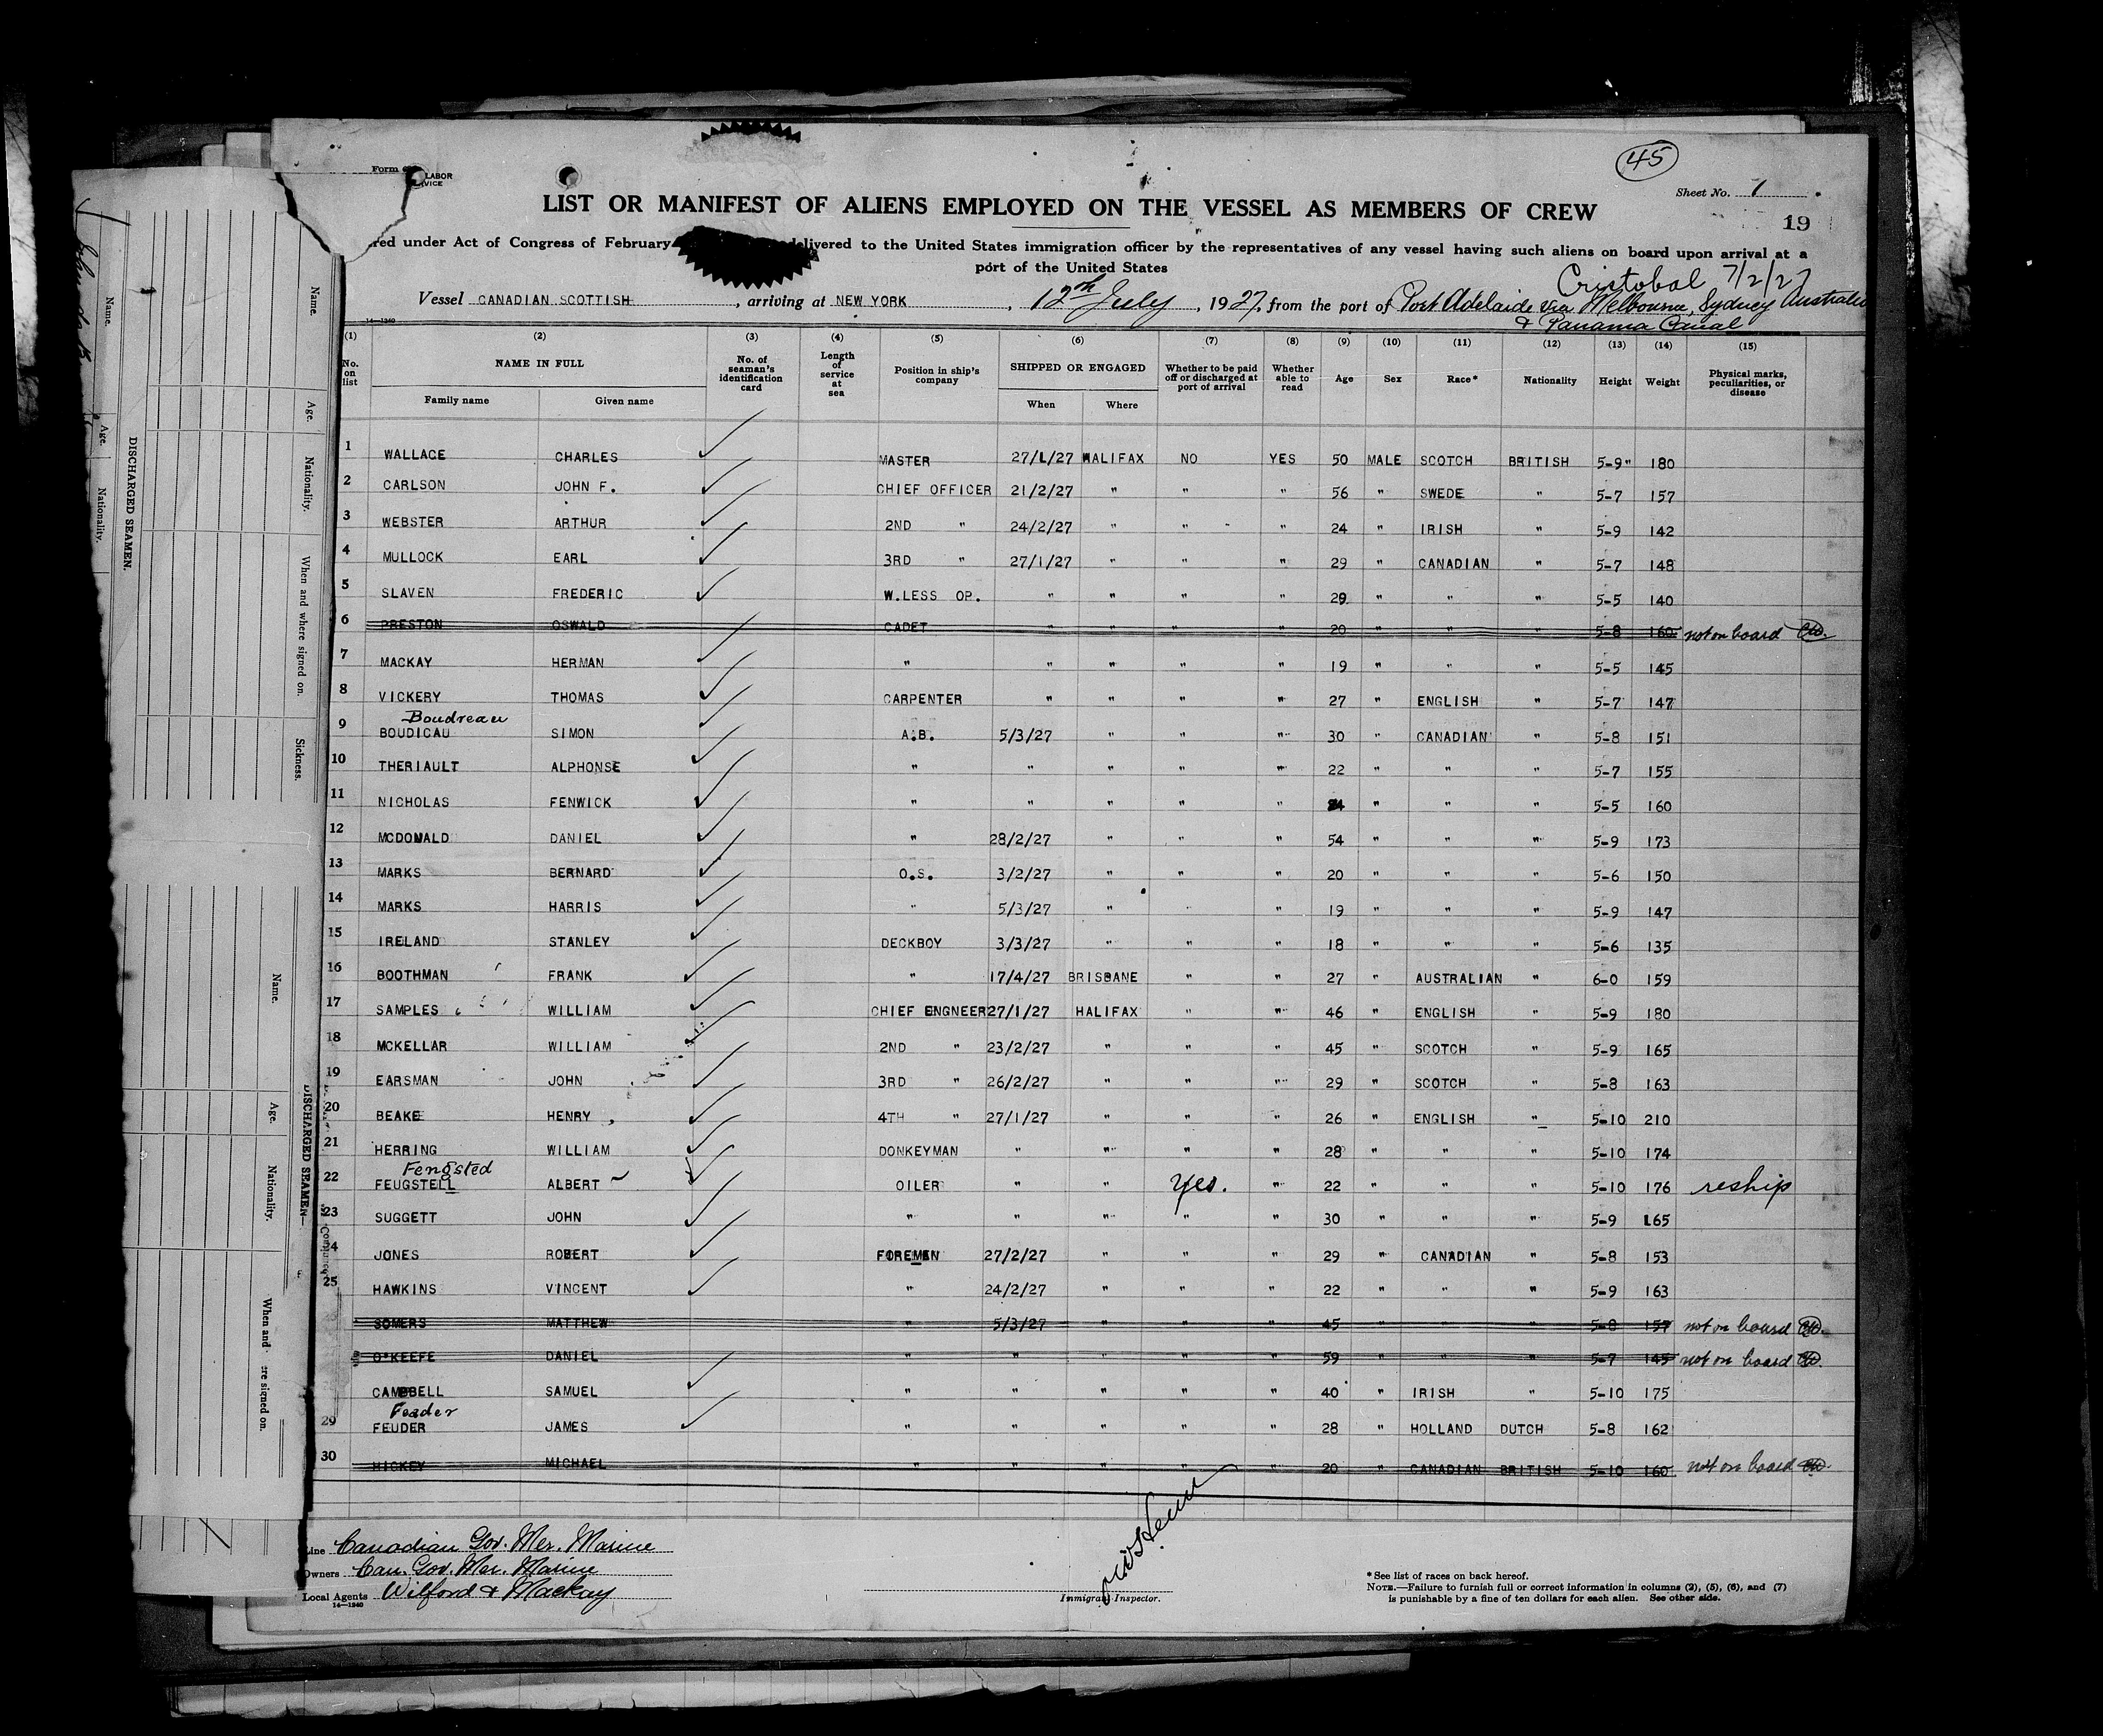 45
Form
LABOR
VICE
Sheet No. 1
LIST OR MANIFEST OF ALIENS EMPLOYED ON THE VESSEL AS MEMBERS OF CREW
19
red under Act of Congress of February elivered to the United States immigration officer by the representatives of any vessel having such aliens on board upon arrival at a
port of the United States
Cristobal 7/2/27
Vessel CANADIAN SCOTTISH, arriving at NEW YORK, 12th July, 1927, from the port of Port Adelaide via Melbourne, Sydney Australia
& Panama Canal
14—1240
(1) (2) (3) (4) (5) (6) (7) (8) (9) (10) (11) (12) (13) (14) (15)
No. on list NAME IN FULL No. of seaman's identification card Length of service at sea Position in ship's company SHIPPED OR ENGAGED Whether to be paid off or discharged at port of arrival Whether able to read Age Sex Race* Nationality Height Weight Physical marks, peculiarities, or disease
Family name Given name When Where
1 WALLACE CHARLES ✓ MASTER 27/1/27 HALIFAX NO YES 50 MALE SCOTCH BRITISH 5-9" 180
2 CARLSON JOHN F. ✓ CHIEF OFFICER 21/2/27 " " " 56 " SWEDE " 5-7 157
3 WEBSTER ARTHUR ✓ 2ND " 24/2/27 " " " 24 " IRISH " 5-9 142
4 MULLOCK EARL ✓ 3RD " 27/1/27 " " " 29 " CANADIAN " 5-7 148
5 SLAVEN FREDERIC ✓ W.LESS OP. " " " " 29 " " " 5-5 140
6 PRESTON OSWALD CADET " " " " 20 " " " 5-8 160 not on board
7 MACKAY HERMAN ✓ " " " " " 19 " " " 5-5 145
8 VICKERY THOMAS ✓ CARPENTER " " " " 27 " ENGLISH " 5-7 147
Boudreau
9 BOUDICAU SIMON ✓ A.B. 5/3/27 " " " 30 " CANADIAN " 5-8 151
10 THERIAULT ALPHONSE ✓ " " " " " 22 " " " 5-7 155
11 NICHOLAS FENWICK ✓ " " " " " " " " 5-5 160
12 MCDONALD DANIEL ✓ " 28/2/27 " " " 54 " " " 5-9 173
13 MARKS BERNARD ✓ O.S. 3/2/27 " " " 20 " " " 5-6 150
14 MARKS HARRIS ✓ " 5/3/27 " " " 19 " " " 5-9 147
15 IRELAND STANLEY ✓ DECKBOY 3/3/27 " " " 18 " " " 5-6 135
16 BOOTHMAN FRANK ✓ " 17/4/27 BRISBANE " " 27 " AUSTRALIAN " 6-0 159
17 SAMPLES WILLIAM ✓ CHIEF ENGNEER 27/1/27 HALIFAX " " 46 " ENGLISH " 5-9 180
18 MCKELLAR WILLIAM ✓ 2ND " 23/2/27 " " " 45 " SCOTCH " 5-9 165
19 EARSMAN JOHN ✓ 3RD " 26/2/27 " " " 29 " SCOTCH " 5-8 163
20 BEAKE HENRY ✓ 4TH " 27/1/27 " " " 26 " ENGLISH " 5-10 210
21 HERRING WILLIAM ✓ DONKEYMAN " " " " 28 " " " 5-10 174
Fengsted
22 FEUGSTELL ALBERT ✓ OILER " " Yes. " 22 " " " 5-10 176 reship
23 SUGGETT JOHN ✓ " " " " " 30 " " " 5-9 165
24 JONES ROBERT ✓ FOREMEN 27/2/27 " " " 29 " CANADIAN " 5-8 153
25 HAWKINS VINCENT ✓ " 24/2/27 " " " 22 " " " 5-9 163
SOMERS MATTHEW " 5/3/27 " " " 45 " " " 5-8 157 not on board
O'KEEFE DANIEL " " " " " 59 " " " 5-7 145 not on board
CAMPBELL SAMUEL ✓ " " " " " 40 " IRISH " 5-10 175
Feader
29 FEUDER JAMES ✓ " " " " " 28 " HOLLAND DUTCH 5-8 162
30 HICKEY MICHAEL " " " " " 20 " CANADIAN BRITISH 5-10 160 not on board
Line Canadian Gov. Mer. Marine
Owners Can. Gov. Mer. Marine
Local Agents Wilford & Mackay
14—1240
Immigrant Inspector.
*See list of races on back hereof.
NOTE.—Failure to furnish full or correct information in columns (2), (5), (6), and (7)
is punishable by a fine of ten dollars for each alien. See other side.
DISCHARGED SEAMEN.
Name.
Age.
Nationality.
When and where signed on.
Sickness.
Name.
Age.
Nationality.
DISCHARGED SEAMEN—
Name.
Age.
Nationality.
When and
are signed on.